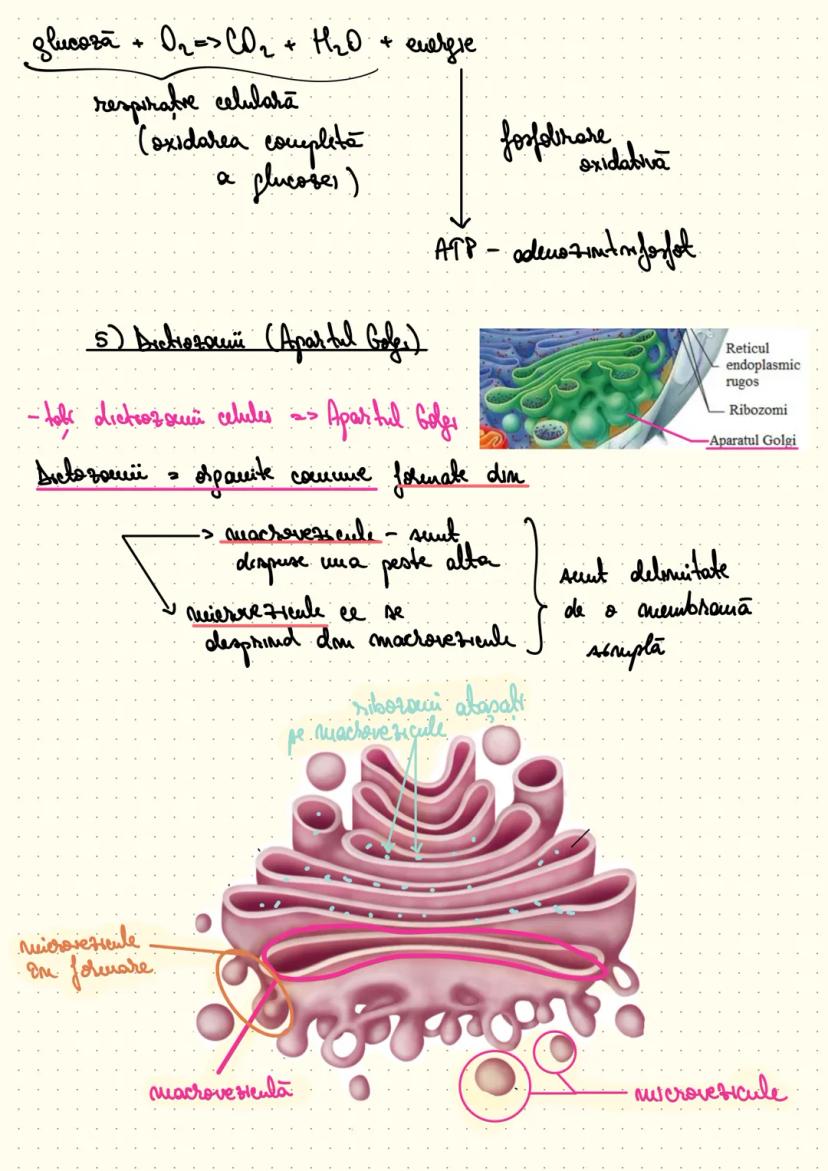 glucoză + O₂ => CO₂ + H₂O + energie
respirație celulară
(oxidarea completă
a glucozei)
fosforilare
oxidativă
ATP - adenozintrifosfat
5) Dictiozomii (Aparatul Golgi)
Reticul
endoplasmic
rugos
Ribozomi
Aparatul Golgi
- toți dictiozomii celulei => Aparatul Golgi
Dictiozomii = organite comune formate din
macrovezicule - sunt
dispuse una peste alta
microvezicule ce se
desprind din macrovezicule
sunt delimitate
de o membrană
simplă
ribozomi atașați
pe macrovezicule
microvezicule
în formare
macroveziculă
microvezicule